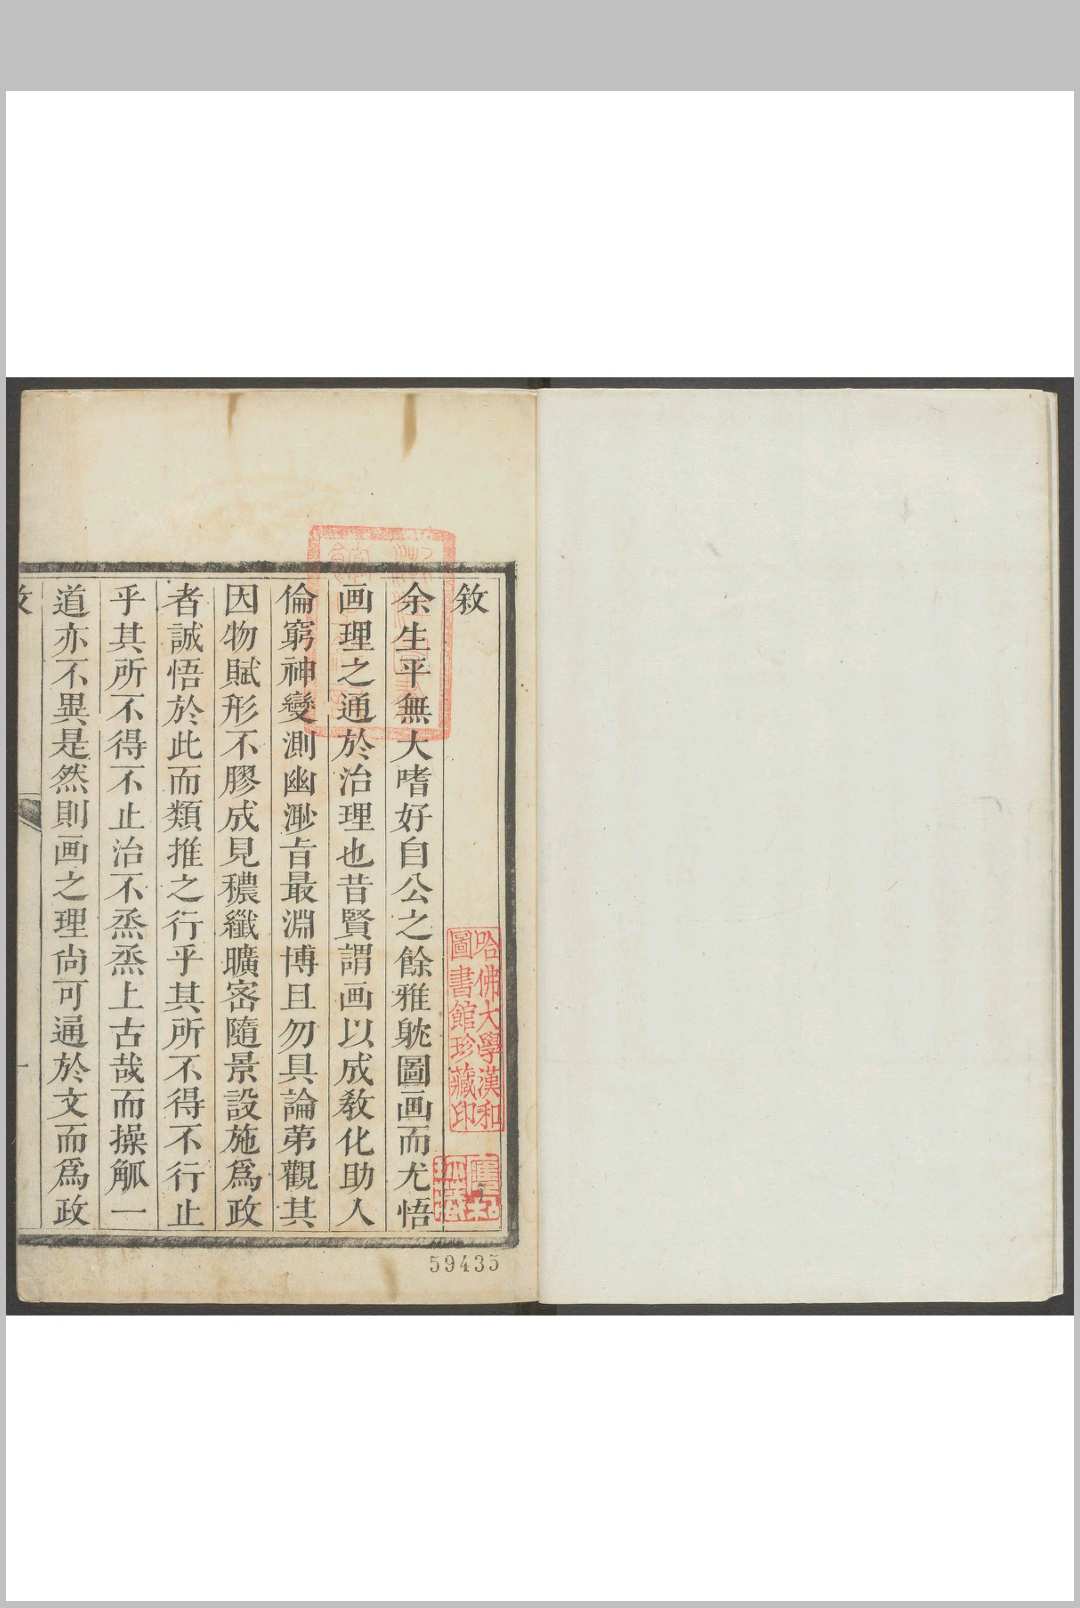 敘
余生平無大嗜好自公之餘雅躭圖画而尤悟
画理之通於治理也昔賢謂画以成敎化助人
倫窮神變測幽渺旨最淵博且勿具論苐觀其
因物賦形不膠成見穠纖曠宻隨景設施爲政
者誠悟於此而類推之行乎其所不得不行止
乎其所不得不止治不烝烝上古哉而操觚一
道亦不異是然則画之理尙可通於文而爲政
哈佛大學漢和
圖書館珍藏印
59435